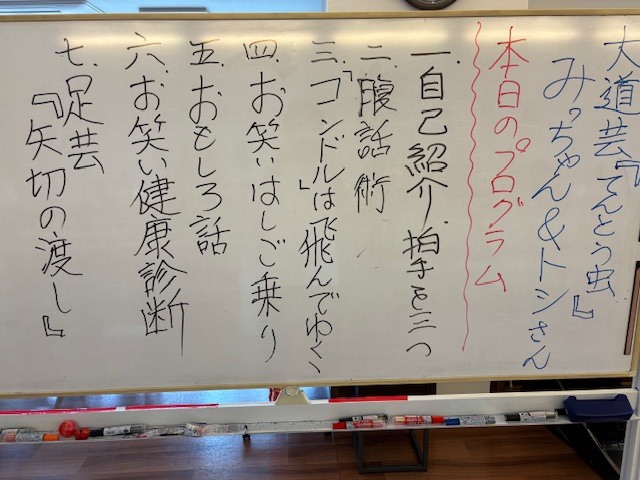 大道芸『てんとう虫』
みっちゃん&トシさん
本日のプログラム
一.自己紹介.拍手を三つ
二.腹話術
三.「コンドルは飛んでゆく」
四.お笑いはしご乗り
五.おもしろ話
六.お笑い健康診断
七.足芸
『矢切の渡し』